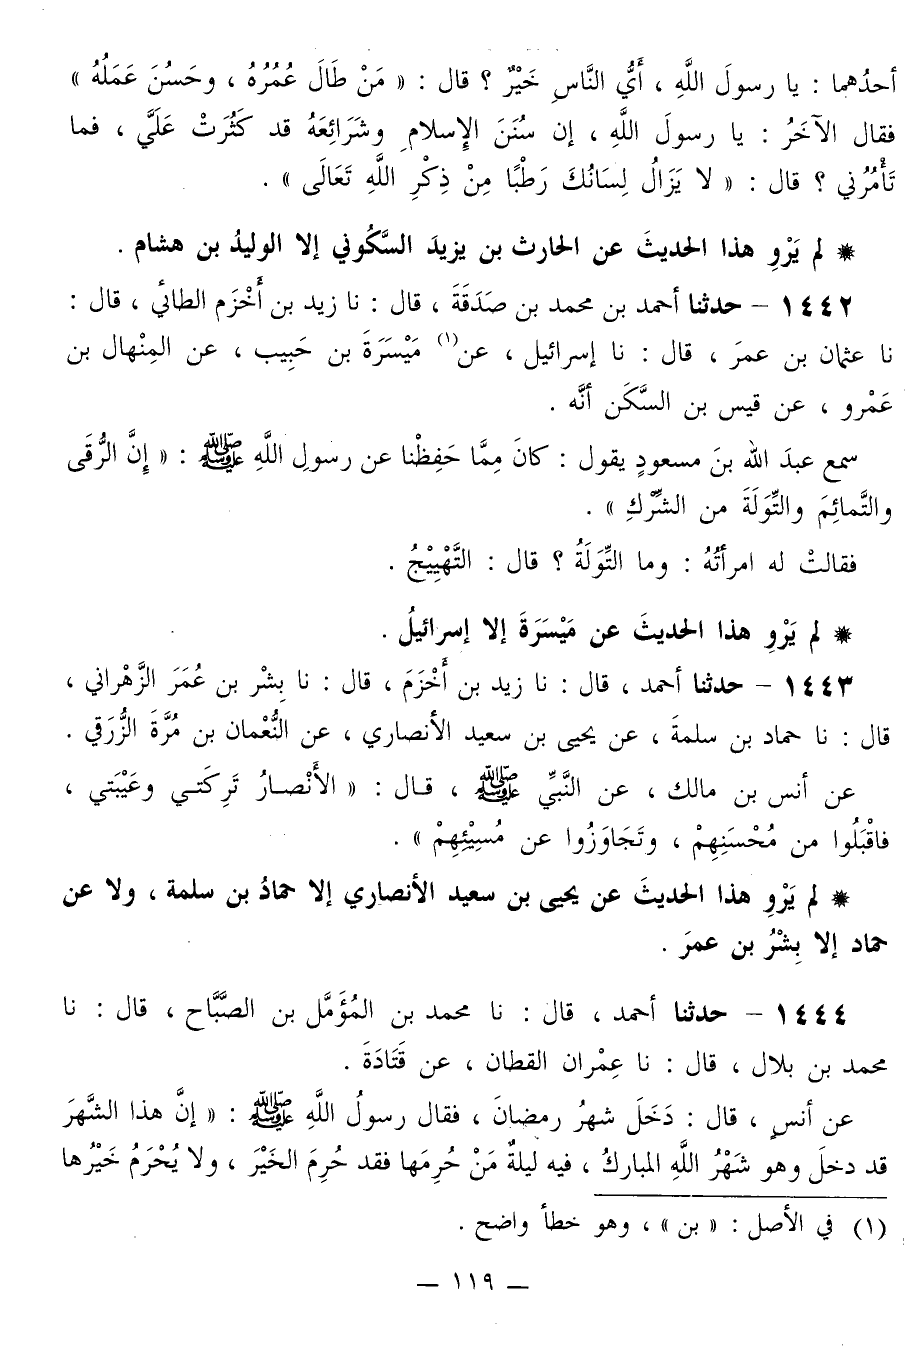 أحدُهما : يا رسولَ اللَّهِ ، أَيُّ النَّاسِ خَيْرٌ ؟ قال : « مَنْ طَالَ عُمُرُهُ ، وحَسُنَ عَمَلُهُ »
فقال الآخَرُ : يا رسولَ اللَّهِ ، إن سُنَنَ الإِسلامِ وشَرَائِعَهُ قد كَثُرَتْ عَلَيَّ ، فما
تَأْمُرُني ؟ قال : « لا يَزَالُ لِسَانُكَ رَطْبًا مِنْ ذِكْرِ اللَّهِ تَعَالَى » .
* لم يَرْوِ هذا الحديثَ عن الحارث بن يزيدَ السَّكُوني إلا الوليدُ بن هشام .
١٤٤٢ – حدثنا أحمد بن محمد بن صَدَقَةَ ، قال : نا زيد بن أَخْزَم الطائي ، قال :
نا عثمان بن عمرَ ، قال : نا إسرائيل ، عن(١) مَيْسَرَةَ بن حَبِيب ، عن المِنْهال بن
عَمْرو ، عن قيس بن السَّكَن أنَّه .
سمع عبدَ الله بنَ مسعودٍ يقول : كانَ مِمَّا حَفِظْنا عن رسولِ اللَّهِ ﷺ : « إِنَّ الرُّقَى
والتَّمائِمَ والتِّوَلَةَ من الشِّرْكِ » .
فقالتْ له امرأتُهُ : وما التِّوَلَةُ ؟ قال : التَّهْيِيْجُ .
* لم يَرْوِ هذا الحديثَ عن مَيْسَرَةَ إلا إسرائيلُ .
١٤٤٣ – حدثنا أحمد ، قال : نا زيد بن أَخْزَمَ ، قال : نا بِشْر بن عُمَرَ الزَّهْراني ،
قال : نا حماد بن سلمةَ ، عن يحيى بن سعيد الأنصاري ، عن النُّعْمان بن مُرَّةَ الزُّرَقي .
عن أنس بن مالك ، عن النَّبيِّ ﷺ ، قـال : « الأَنْصـارُ تَرِكَتـي وعَيْبَتي ،
فاقْبَلُوا من مُحْسَنِهِمْ ، وتَجَاوَزُوا عن مُسِيْئِهِمْ » .
* لم يَرْوِ هذا الحديثَ عن يحيى بن سعيد الأنصاري إلا حمادُ بن سلمة ، ولا عن
حماد إلا بِشْرُ بن عمرَ .
١٤٤٤ – حدثنا أحمد ، قال : نا محمد بن المُؤَمَّل بن الصَّبَّاح ، قال : نا
محمد بن بلال ، قال : نا عِمْران القطان ، عن قَتَادَةَ .
عن أنسٍ ، قال : دَخَلَ شهرُ رمضانَ ، فقال رسولُ اللَّهِ ﷺ : « إنَّ هذا الشَّهْرَ
قد دخلَ وهو شَهْرُ اللَّهِ المباركُ ، فيه ليلةٌ مَنْ حُرِمَها فقد حُرِمَ الخَيْرَ ، ولا يُحْرَمُ خَيْرُها
(١) في الأصل : « بن » ، وهو خطأ واضح .
– ١١٩ –